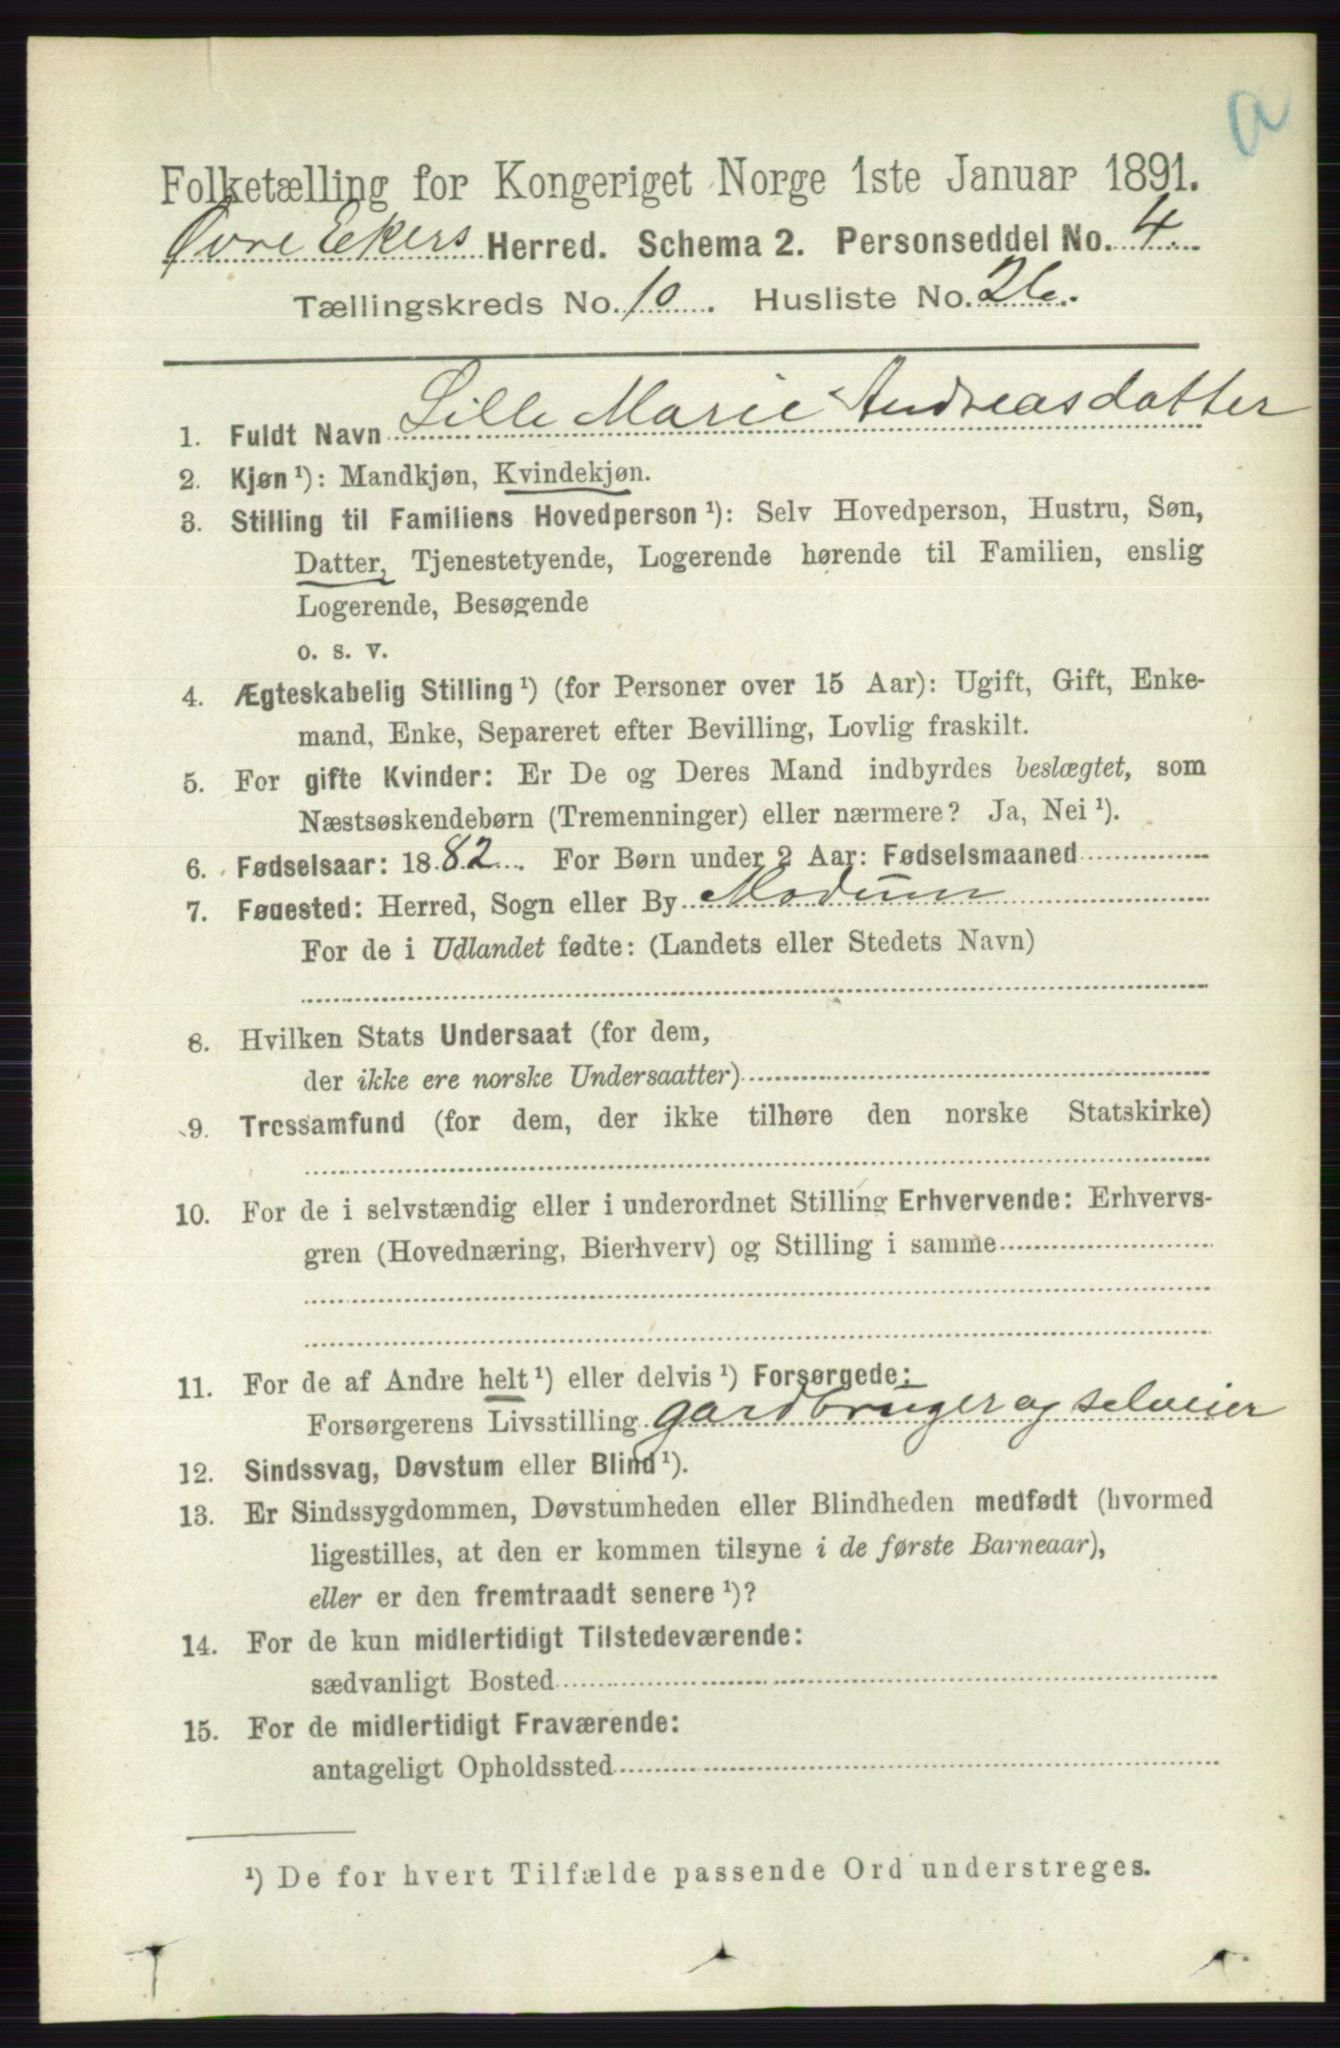 a
Folketælling for Kongeriget Norge 1ste Januar 1891.
Øvre Ekers Herred. Schema 2. Personseddel No. 4.
Tællingskreds No. 10. Husliste No. 26.
1. Fuldt Navn Lille Marie Andreasdatter
2. Kjøn ¹): Mandkjøn, Kvindekjøn.
3. Stilling til Familiens Hovedperson ¹): Selv Hovedperson, Hustru, Søn,
Datter, Tjenestetyende, Logerende hørende til Familien, enslig
Logerende, Besøgende
o. s. v.
4. Ægteskabelig Stilling ¹) (for Personer over 15 Aar): Ugift, Gift, Enke-
mand, Enke, Separeret efter Bevilling, Lovlig fraskilt.
5. For gifte Kvinder: Er De og Deres Mand indbyrdes beslægtet, som
Næstsøskendebørn (Tremenninger) eller nærmere? Ja, Nei ¹).
6. Fødselsaar: 1882. For Børn under 2 Aar: Fødselsmaaned
7. Føuested: Herred, Sogn eller By Modum
For de i Udlandet fødte: (Landets eller Stedets Navn)
8. Hvilken Stats Undersaat (for dem,
der ikke ere norske Undersaatter)
9. Trossamfund (for dem, der ikke tilhøre den norske Statskirke)
10. For de i selvstændig eller i underordnet Stilling Erhvervende: Erhvervs-
gren (Hovednæring, Bierhverv) og Stilling i samme
11. For de af Andre helt ¹) eller delvis ¹) Forsørgede:
Forsørgerens Livsstilling gardbruger og selveier
12. Sindssvag, Døvstum eller Blind ¹).
13. Er Sindssygdommen, Døvstumheden eller Blindheden medfødt (hvormed
ligestilles, at den er kommen tilsyne i de første Barneaar),
eller er den fremtraadt senere ¹)?
14. For de kun midlertidigt Tilstedeværende:
sædvanligt Bosted
15. For de midlertidigt Fraværende:
antageligt Opholdssted
¹) De for hvert Tilfælde passende Ord understreges.